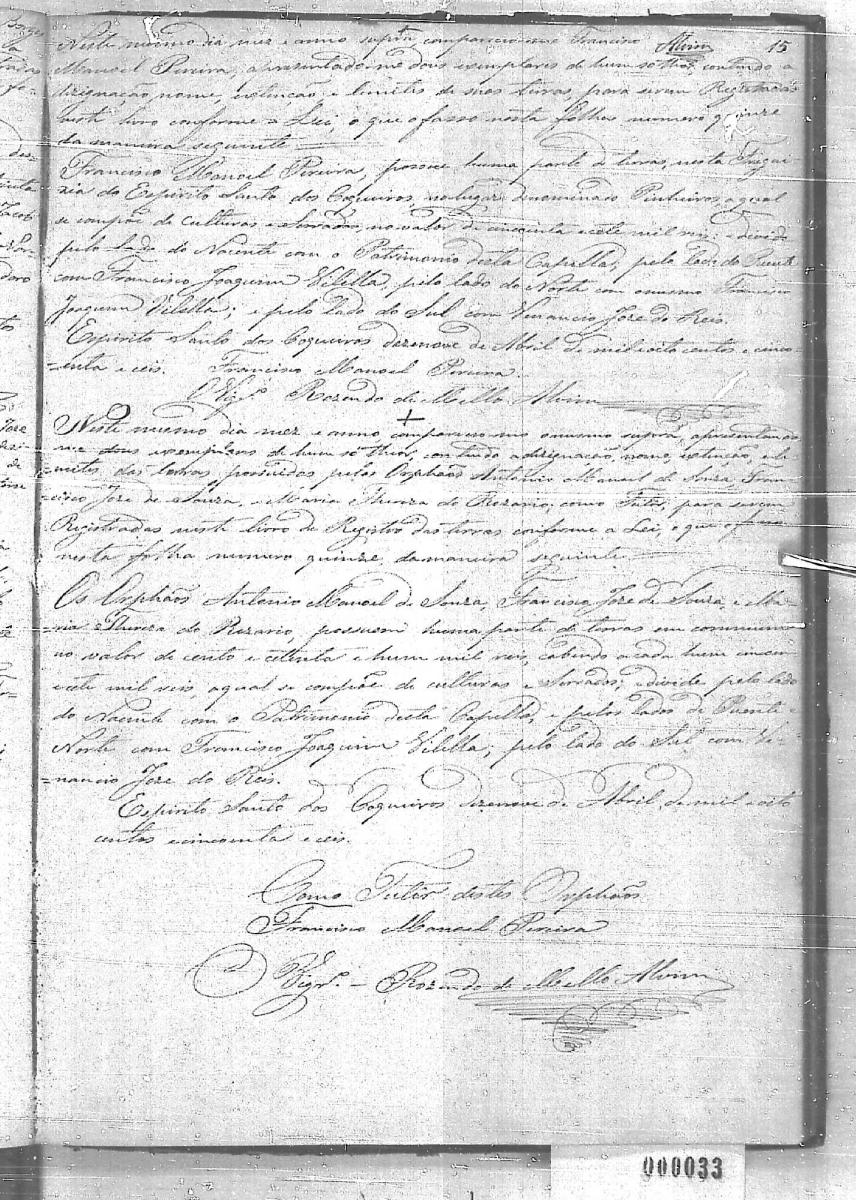 Alvim 15
Neste mesmo dia mez e anno supra compareceo-me Francisco
Manoel Pereira, aprezentado-me dous exemplares de hum só thior, contendo a
dizignação, nome, extincão e limites de suas terras, para serem Registradas
neste livro conforme a Lei, o que o fasso nesta folha numero quinze
da maneira seguinte
Francisco Manoel Pereira, possue huma parte de terras, nesta Fregue-
zia do Espirito Santo dos Coqueiros, no lugar denominado Pinheiros, a qual
se compõe de culturas e serrados, no valor de cincoenta e cete mil reis, e divide
pelo lado do Nacente com o Patrimonio desta Capella, pelo lado do Puente
com Francisco Joaquim Vilella, pelo lado do Norte com o mesmo Francisco
Joaquim Vilella; e pelo lado do Sul com Venancio Joze do Reis.
Espirito Santo dos Coqueiros dezenove de Abril de mil oito centos e cinco-
=enta e ceis. Francisco Manoel Pereira.
O Vigr.º Rozendo de Mello Alvim
Neste mesmo dia mez e anno compareceo-me o mesmo supra, aprezentando-
me dous exemplares de hum só thior, contendo a dizignação, nome, extincão, e li-
mites das terras possuidas pelos Orphãos Antonio Manoel de Souza, Fran-
cisco Joze de Souza, e Maria Thereza do Rozario, como Tutor, para serem
Registradas neste livro de Registro das terras conforme a Lei, o que o fasso
nesta folha numero quinze da maneira seguinte
Os Orphãos Antonio Manoel de Souza, Francisco Joze de Souza, e Ma-
ria Thereza do Rozario, possuem huma parte de terras em commum
no valor de cento e cetenta e hum mil reis, cabendo a cada hum cincoen
e cete mil reis, a qual se compõe de culturas e serrados; e divide pelo lado
do Nacente com o Patrimonio desta Capella, e pelos lados de Puente e
Norte com Francisco Joaquim Vilella; pelo lado do Sul com Ve-
=nancio Joze do Reis.
Espirito Santo dos Coqueiros dezenove de Abril de mil e oito
centos e cincoenta e ceis.
Como Tutor destes Orphãos
Francisco Manoel Pereira
O Vigr.º - Rozendo de Mello Alvim
000033